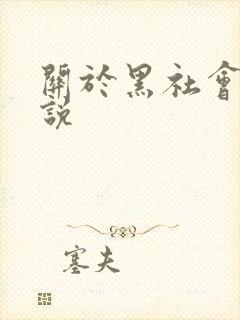 關於黑社會
說
塞夫